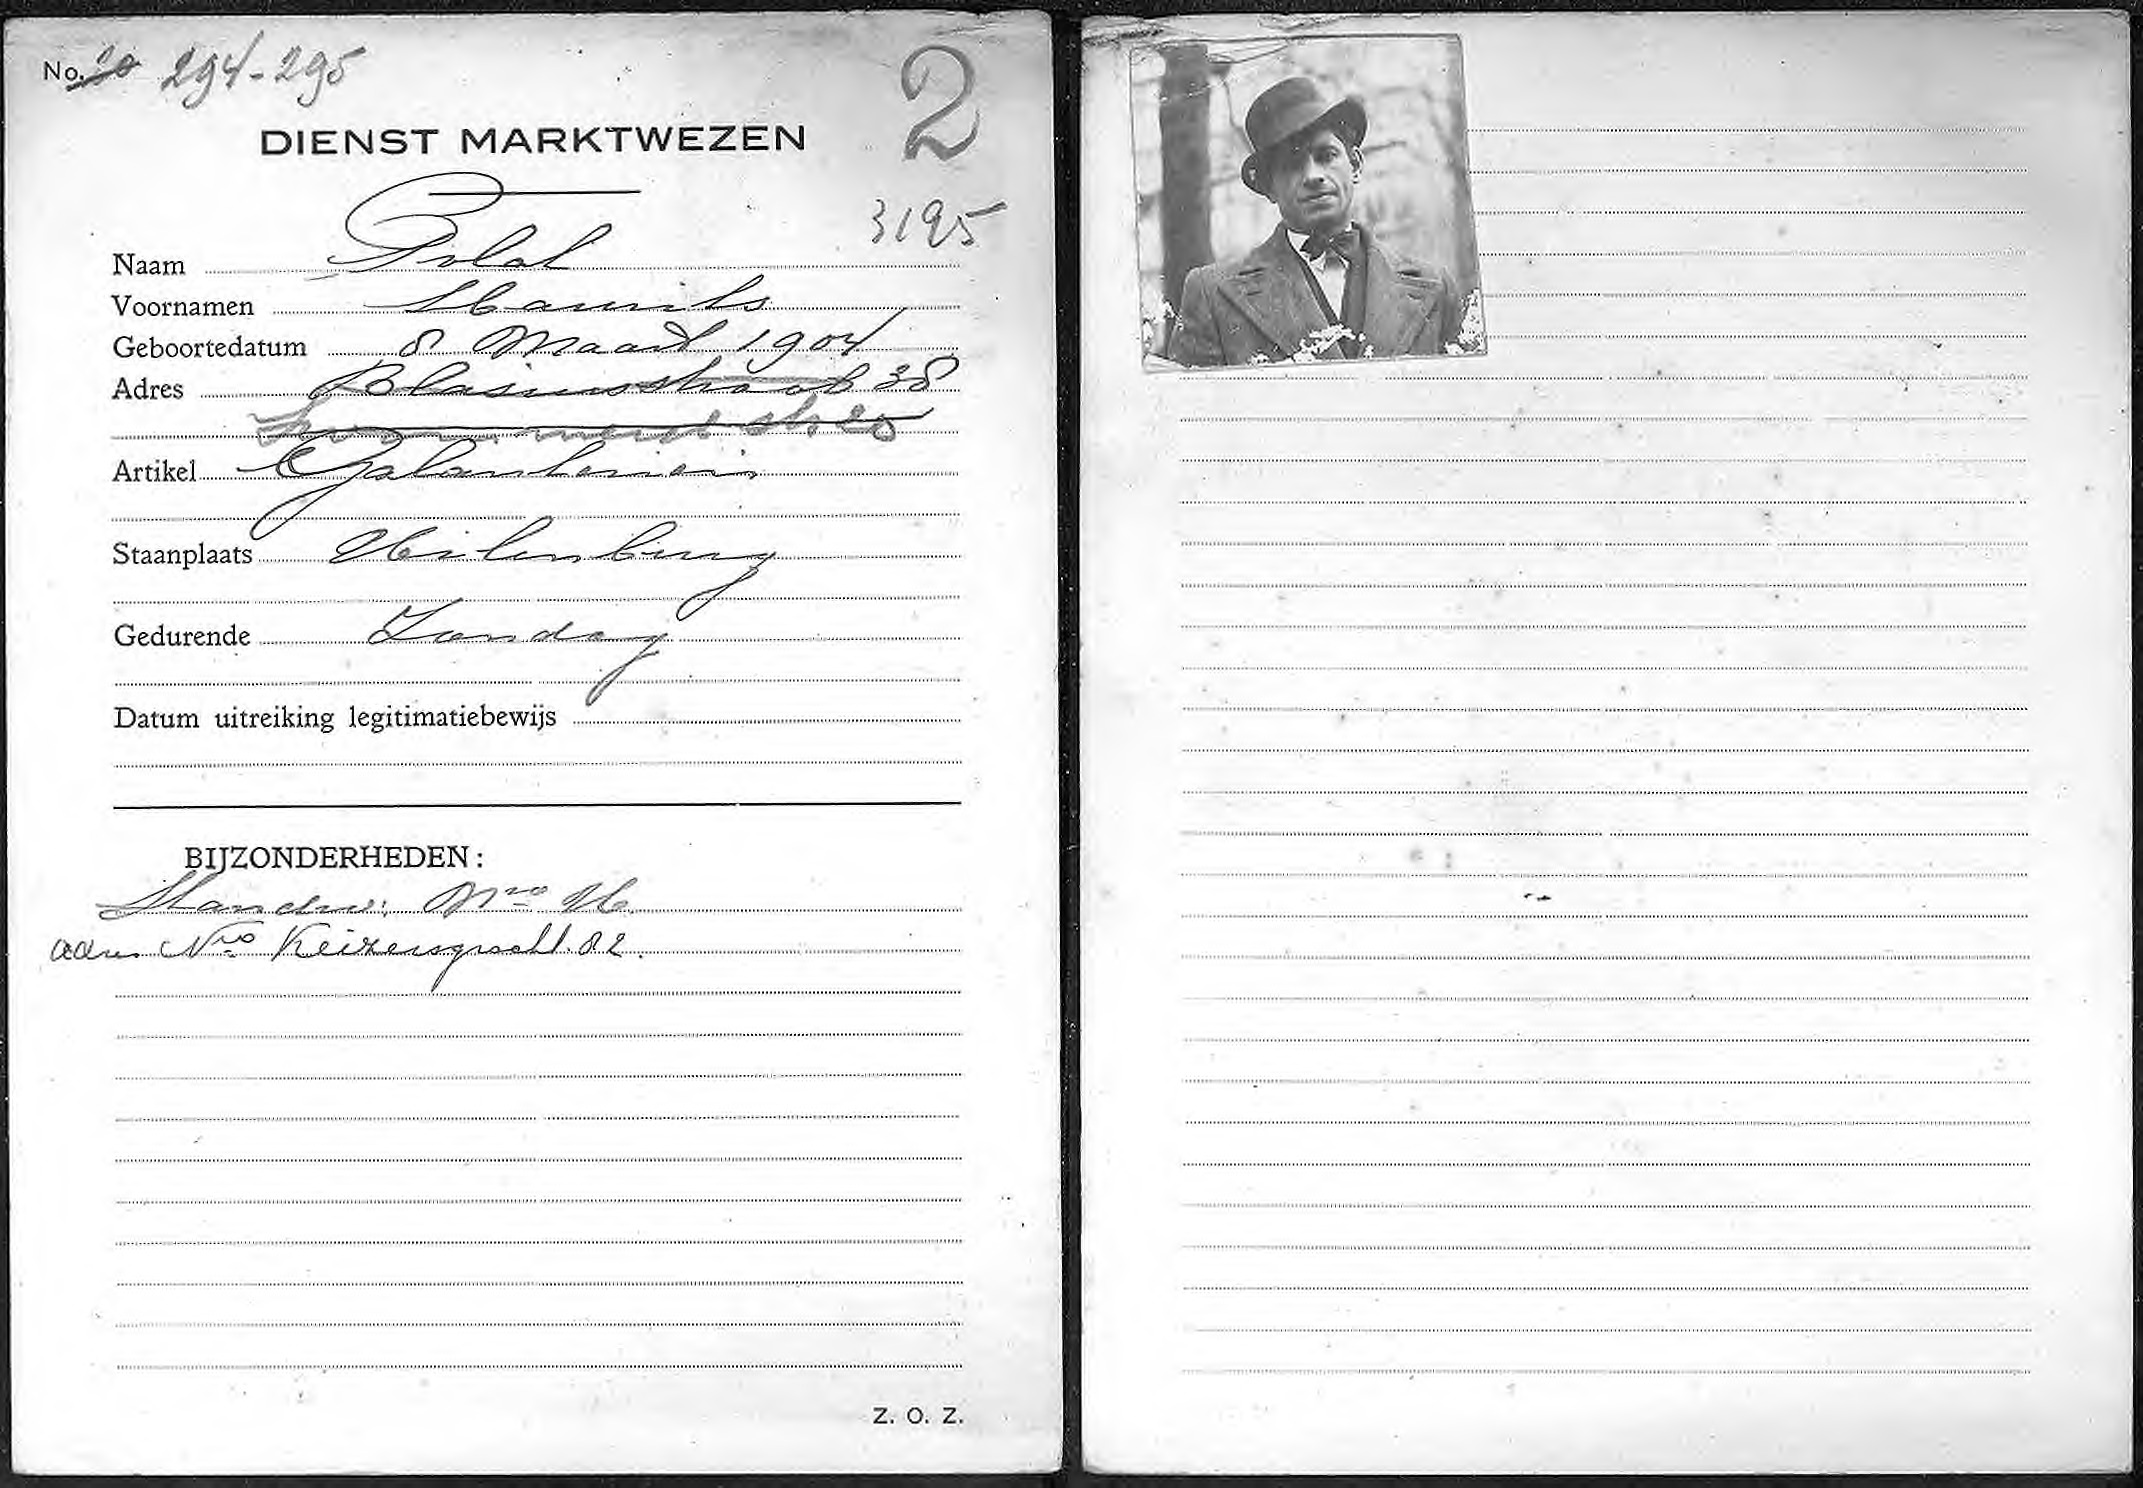 No. 20 294-295
2
DIENST MARKTWEZEN
3195
Naam Polak
Voornamen Maurits
Geboortedatum 8 Maart 1904
Adres Blasiusstraat 38
str. 20
Artikel Galanterieën
Staanplaats Uilenburg
Gedurende Zondag
Datum uitreiking legitimatiebewijs
BIJZONDERHEDEN:
adres Nwe Keizersgracht 82.
Z. O. Z.